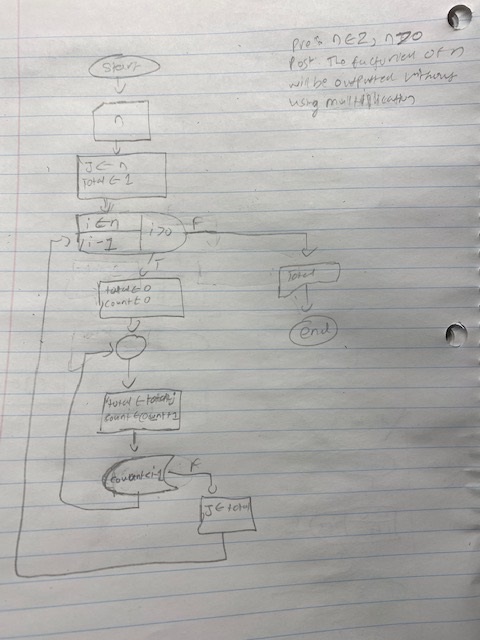 Pre: n ∈ Z, n>0
Post: The factorial of n
will be outputed without
using multiplication
Start
n
J ← n
Total ← 1
i ← n
i-1
i>0
F
T
Total
end
total ← 0
count ← 0
total ← total+j
count ← count+1
F
J ← total